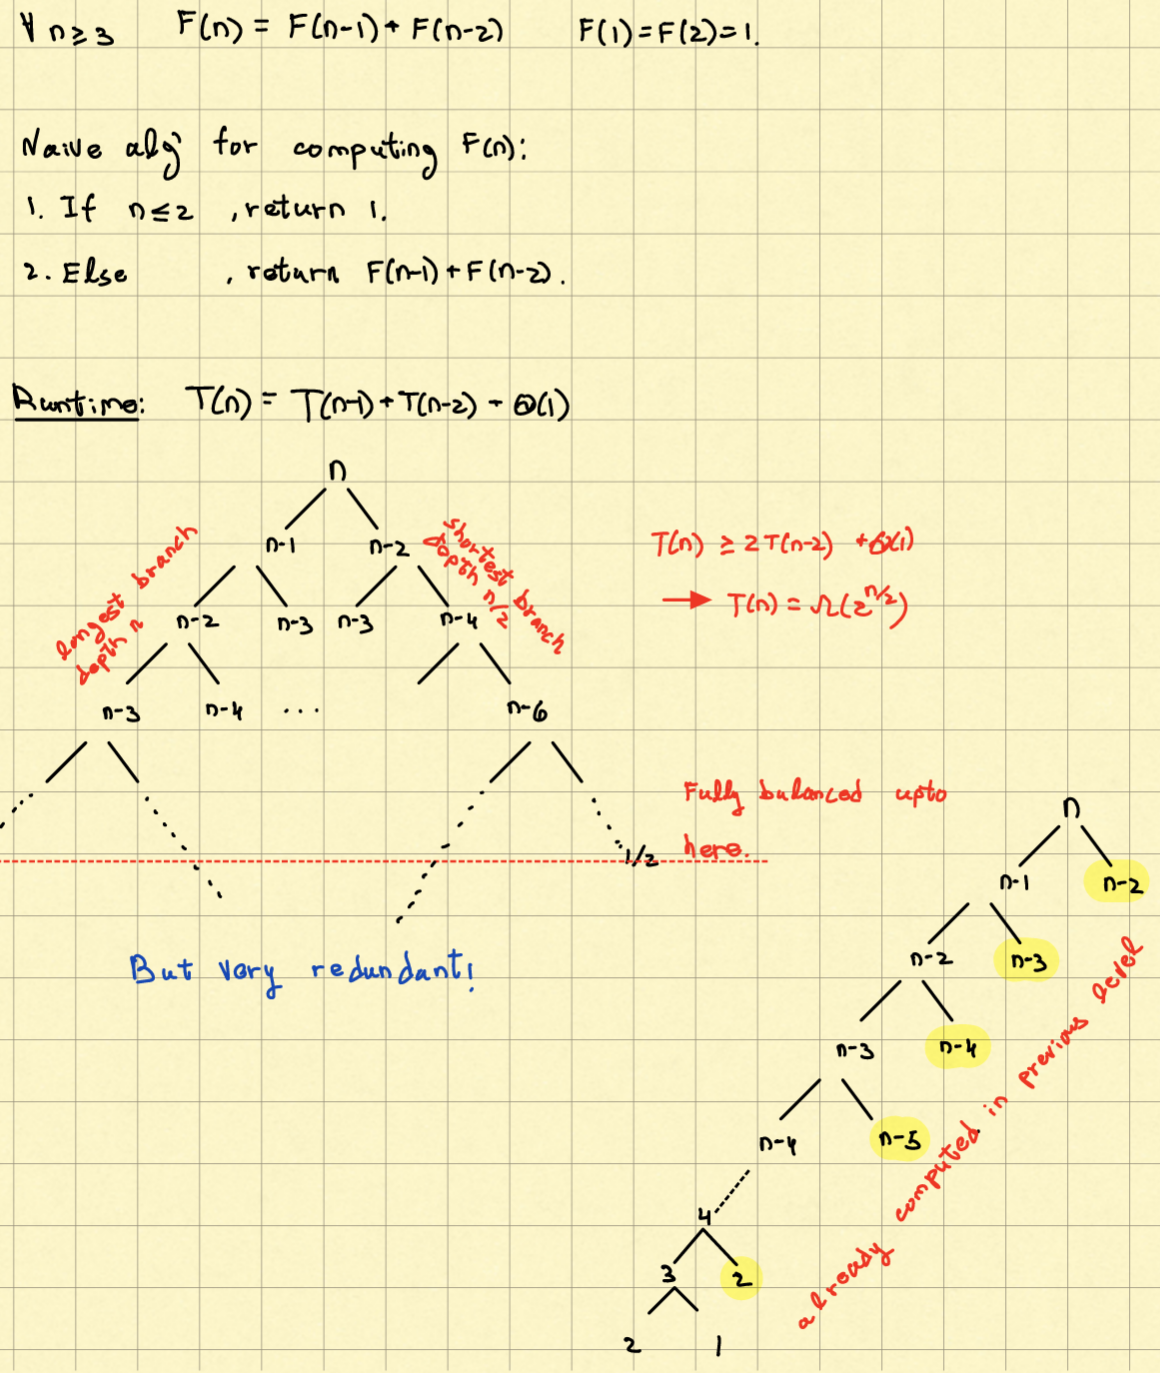 ∀ n≥3 F(n) = F(n-1) + F(n-2) F(1)=F(2)=1.
Naive alg for computing F(n):
1. If n≤2 , return 1.
2. Else , return F(n-1)+F(n-2).
Runtime: T(n) = T(n-1)+T(n-2) + Θ(1)
n
n-1 n-2
longest branch
depth n
shortest branch
depth n/2
n-2 n-3 n-3 n-4
n-3 n-4 ... n-6
T(n) ≥ 2T(n-2) + Θ(1)
→ T(n) = Ω(2^{n/2})
Fully balanced upto
here.
1/2
But very redundant!
n
n-1 n-2
n-2 n-3
n-3 n-4
n-4 n-5
4
3 2
2 1
already computed in previous level